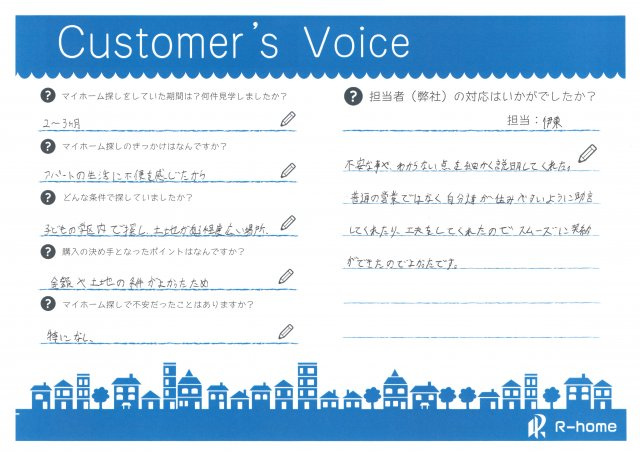 Customer's Voice
マイホーム探しをしていた期間は？何件見学しましたか？
2〜3ヶ月
マイホーム探しのきっかけはなんですか？
アパートの生活に不便を感じたから
どんな条件で探していましたか？
子どもの学区内で探し、土地が広い場所、
購入の決め手となったポイントはなんですか？
金額や土地の条件がよかったため
マイホーム探しで不安だったことはありますか？
特になし。
担当者（弊社）の対応はいかがでしたか？
担当：伊東
不安な事や、わからない点を細かく説明してくれた。
普通の営業ではなく自分達が住みやすいように助言
してくれたり、工夫をしてくれたのでスムーズに
ができたのでよかったです。
R-home